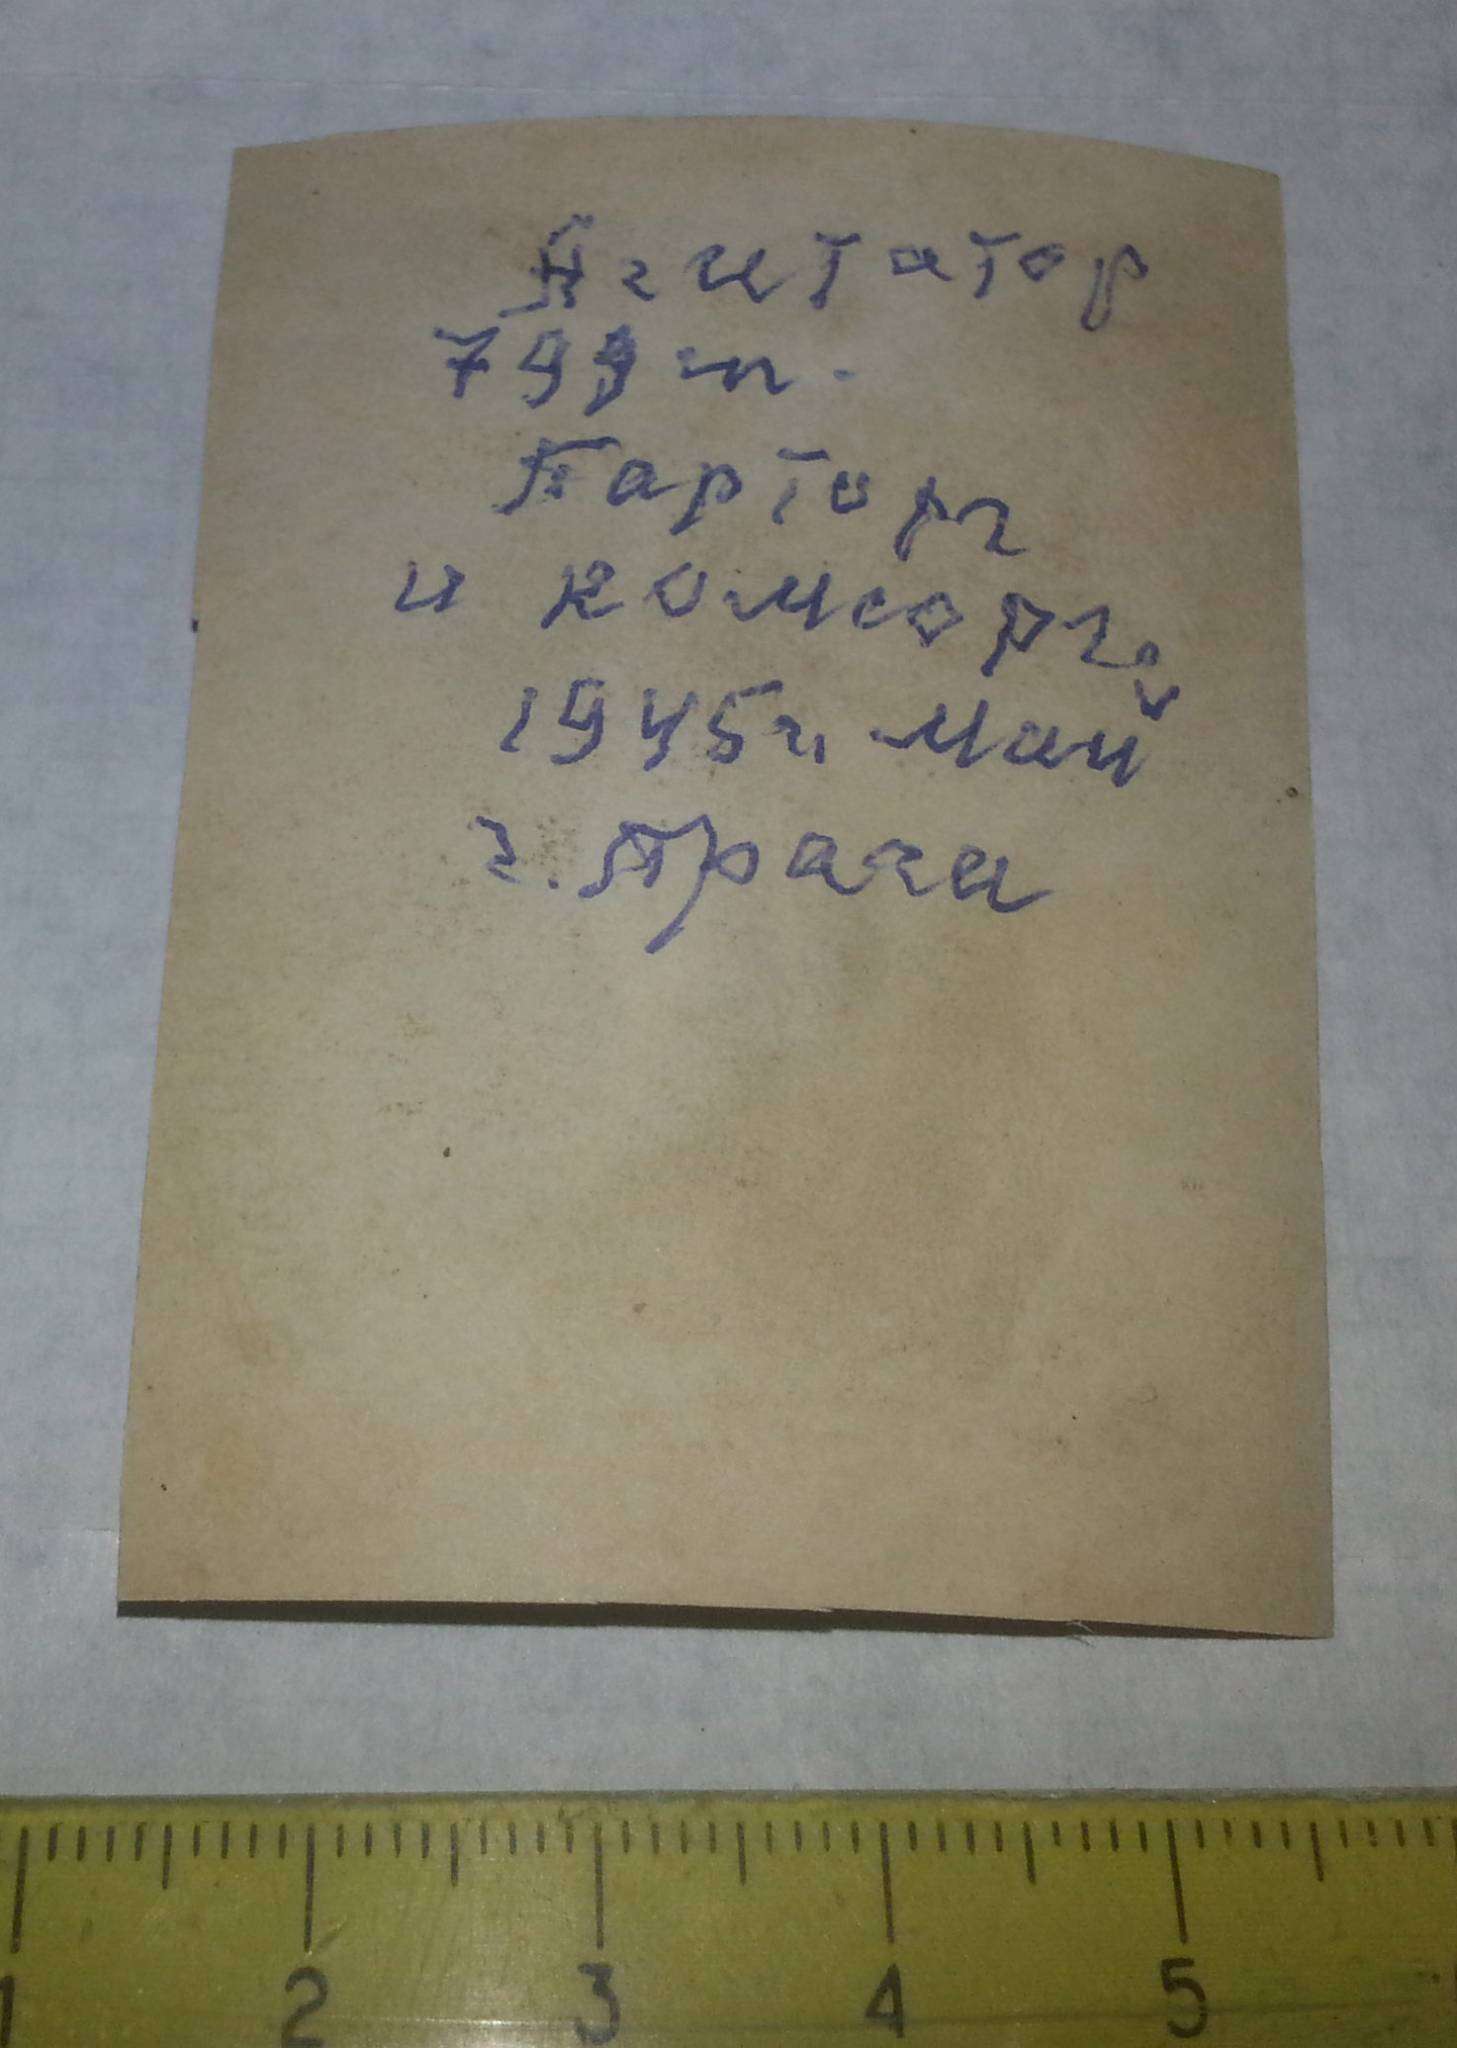 Агитатор
799 п.
Парторг
и комсорг.
1945 г. май
г. Прага
1 2 3 4 5